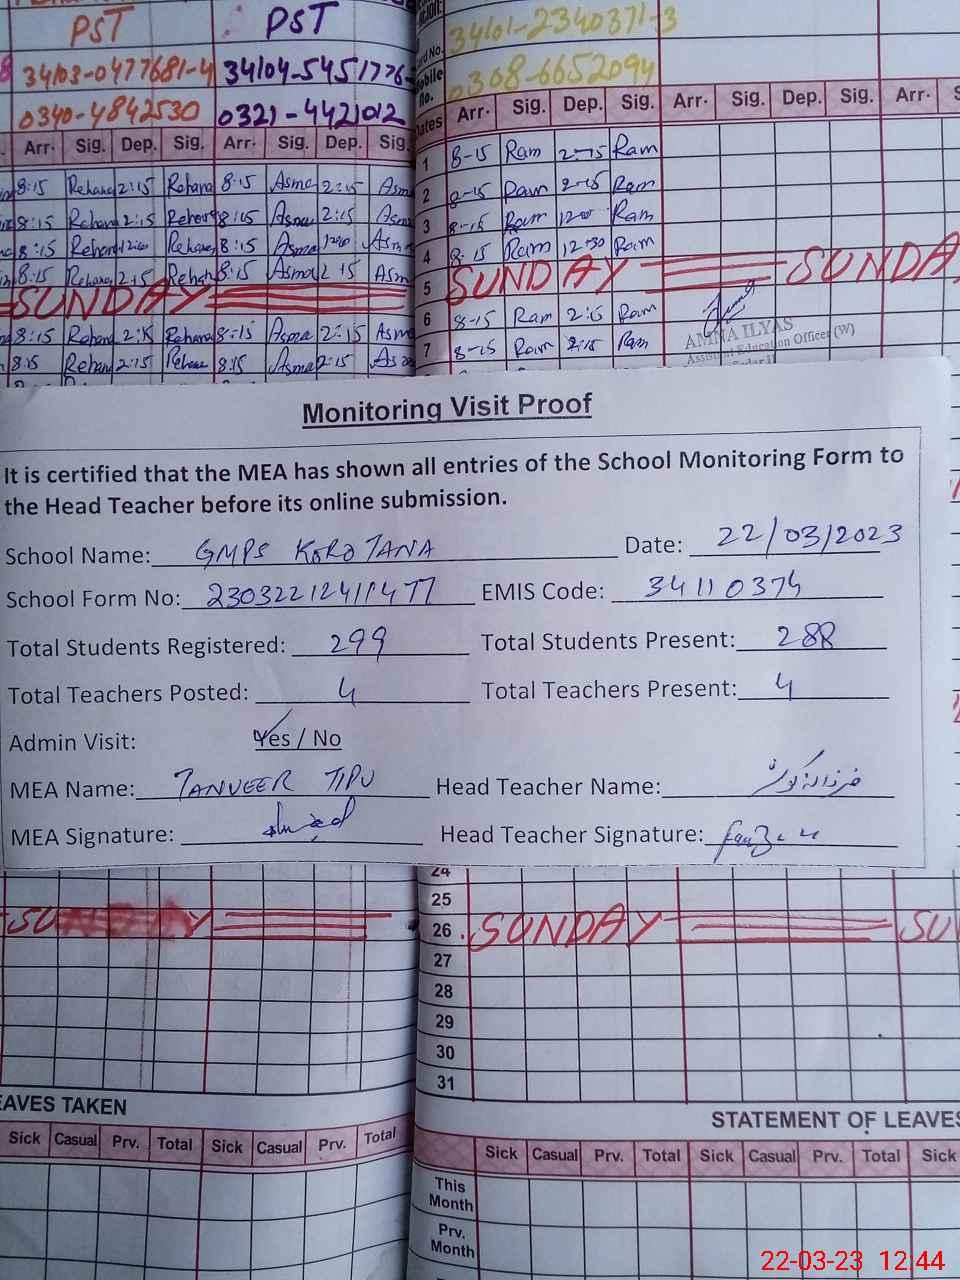 PST PST
34103-0477681-4 34104-5451776-
0340-4842530 0321-4421012
Arr. Sig. Dep. Sig. Arr. Sig. Dep. Sig.
8:15 Rehana 2:15 Rehana 8:15 Asma 2:15 Asm
8:15 Rehana 2:15 8:15 Asma 2:15
8:15 Rehana Rehana 8:15 Asma 1200 Asm
8:15 Rehana 2:15 8:15 Asma 2:15 Asm
SUNDAY
8:15 Rehana 2:15 Rehana 8:15 Asma 2:15 Asma
8:15 Rehana 2:15 Rehana 8:15 Asma 2:15 As
34101-2340371-3
Mobile No. 0308-6652094
Dates Arr. Sig. Dep. Sig. Arr. Sig. Dep. Sig. Arr.
1 8-15 Ram 2-15 Ram
2 8-15 Ram 2-15 Ram
3 8-15 Ram 1200 Ram
4 8-15 Ram 12-30 Ram
5 SUNDAY SUNDA
6 8-15 Ram 2:15 Ram
7 8-15 Ram 2:15 Ram
AMNA ILYAS
Assistant Education Officer (W)
Monitoring Visit Proof
It is certified that the MEA has shown all entries of the School Monitoring Form to
the Head Teacher before its online submission.
School Name: GMPS KOROTANA Date: 22/03/2023
School Form No: EMIS Code: 34110374
Total Students Registered: 299 Total Students Present: 288
Total Teachers Posted: 4 Total Teachers Present: 4
Admin Visit: Yes / No
MEA Name: TANVEER TIPU Head Teacher Name: فرزانہ کوثر
MEA Signature: Head Teacher Signature:
24
25
SUNDAY 26 SUNDAY SU
27
28
29
30
31
EAVES TAKEN STATEMENT OF LEAVES
Sick Casual Prv. Total Sick Casual Prv. Total
Sick Casual Prv. Total Sick Casual Prv. Total Sick
This Month
Prv. Month
22-03-23 12:44